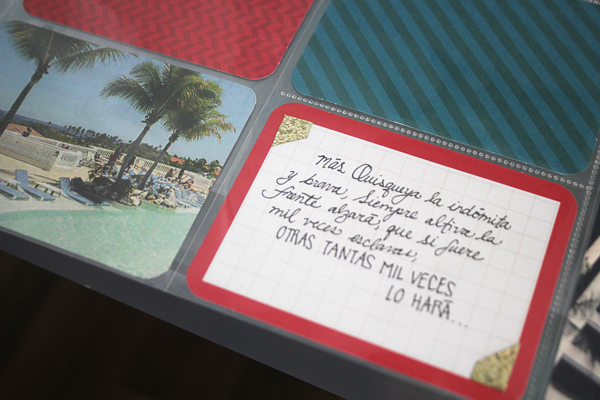 más Quisqueya la indómita
y brava, siempre altiva la
frente alzará, que si fuere
mil veces esclava,
OTRAS TANTAS MIL VECES
LO HARÁ...